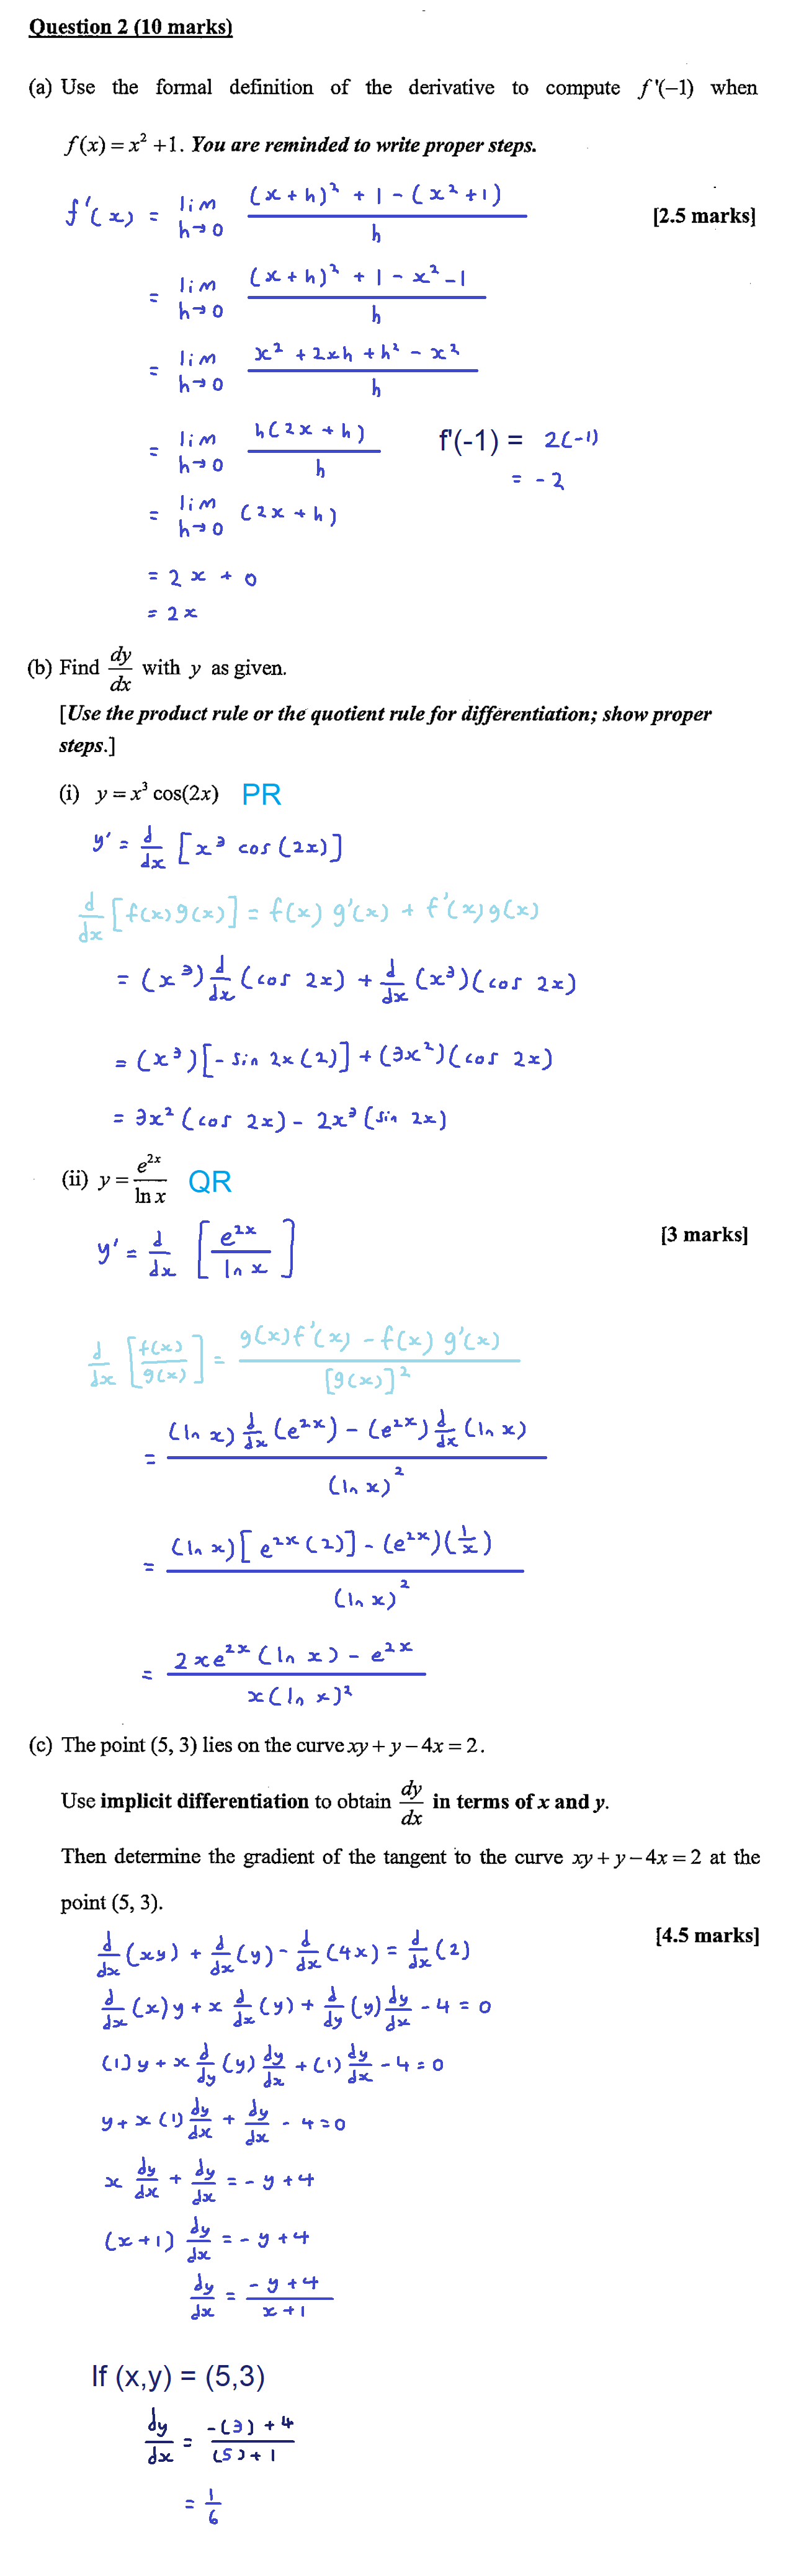 Question 2 (10 marks)
(a) Use the formal definition of the derivative to compute f '(−1) when
f(x) = x² + 1. You are reminded to write proper steps.
f'(x) = lim h→0 ((x+h)² + 1 − (x²+1)) / h
[2.5 marks]
= lim h→0 ((x+h)² + 1 − x² − 1) / h
= lim h→0 (x² + 2xh + h² − x²) / h
= lim h→0 h(2x + h) / h
f'(-1) = 2(-1)
= -2
= lim h→0 (2x + h)
= 2x + 0
= 2x
(b) Find dy/dx with y as given.
[Use the product rule or the quotient rule for differentiation; show proper
steps.]
(i) y = x³ cos(2x) PR
y' = d/dx [x³ cos(2x)]
d/dx [f(x)g(x)] = f(x) g'(x) + f'(x)g(x)
= (x³) d/dx (cos 2x) + d/dx (x³)(cos 2x)
= (x³)[- sin 2x (2)] + (3x²)(cos 2x)
= 3x² (cos 2x) - 2x³ (sin 2x)
(ii) y = e²ˣ / ln x QR
y' = d/dx [e²ˣ / ln x]
[3 marks]
d/dx [f(x)/g(x)] = (g(x)f'(x) - f(x)g'(x)) / [g(x)]²
= ((ln x) d/dx (e²ˣ) - (e²ˣ) d/dx (ln x)) / (ln x)²
= ((ln x)[e²ˣ (2)] - (e²ˣ)(1/x)) / (ln x)²
= (2xe²ˣ (ln x) - e²ˣ) / x(ln x)²
(c) The point (5, 3) lies on the curve xy + y − 4x = 2.
Use implicit differentiation to obtain dy/dx in terms of x and y.
Then determine the gradient of the tangent to the curve xy + y − 4x = 2 at the
point (5, 3).
[4.5 marks]
d/dx (xy) + d/dx (y) - d/dx (4x) = d/dx (2)
d/dx (x)y + x d/dx (y) + d/dy (y) dy/dx - 4 = 0
(1)y + x d/dy (y) dy/dx + (1) dy/dx - 4 = 0
y + x (1) dy/dx + dy/dx - 4 = 0
x dy/dx + dy/dx = - y + 4
(x + 1) dy/dx = - y + 4
dy/dx = (- y + 4) / (x + 1)
If (x,y) = (5,3)
dy/dx = (-(3) + 4) / ((5) + 1)
= 1/6